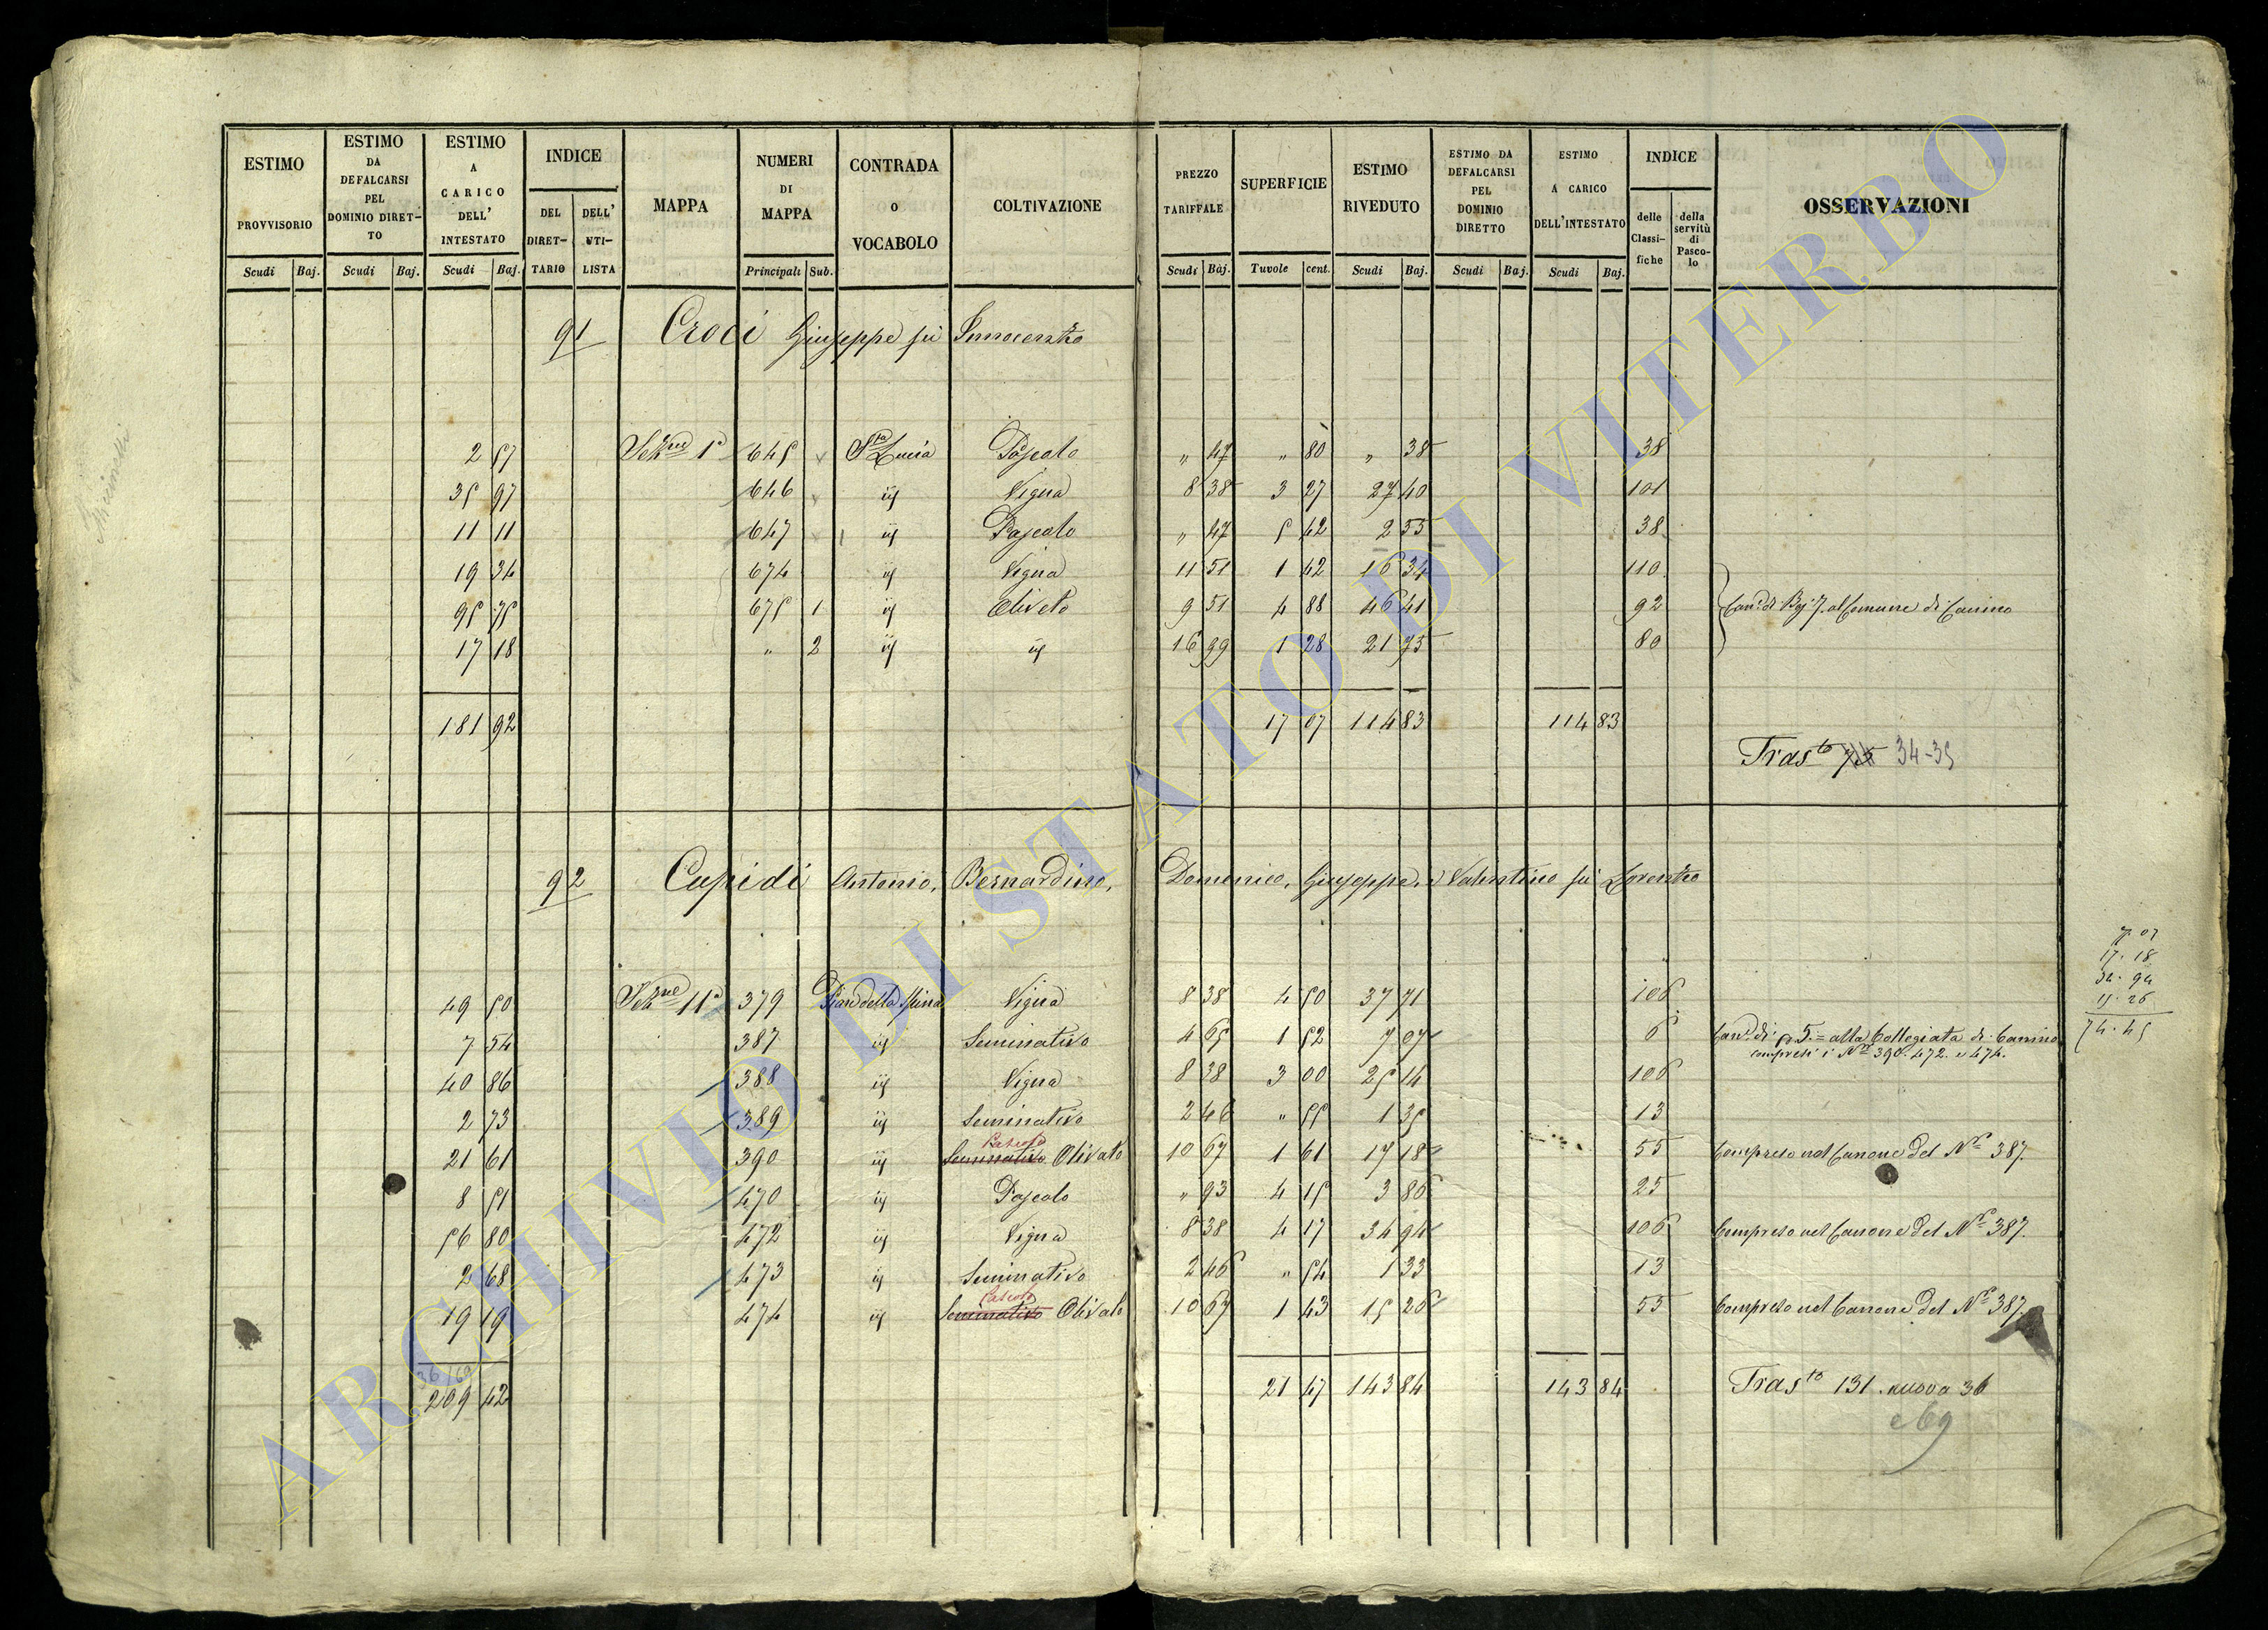 ESTIMO PROVVISORIO | ESTIMO DA DEFALCARSI PEL DOMINIO DIRETTO | ESTIMO A CARICO DELL' INTESTATO | INDICE DEL DIRETTARIO | DELL' UTILISTA | MAPPA | NUMERI DI MAPPA | CONTRADA O VOCABOLO | COLTIVAZIONE | PREZZO TARIFFALE | SUPERFICIE | ESTIMO RIVEDUTO | ESTIMO DA DEFALCARSI PEL DOMINIO DIRETTO | ESTIMO A CARICO DELL'INTESTATO | INDICE delle Classifiche | della servitù di Pascolo | OSSERVAZIONI
Scudi Baj. | Scudi Baj. | Scudi Baj. | Principali Sub. | Scudi Baj. | Tavole cent. | Scudi Baj. | Scudi Baj. | Scudi Baj.
91 Croci Giuseppe fu Innocenzo
2 57 Sezne 1a 645 Sta Lucia Pascolo " 47 " 80 " 38 38
35 97 646 ij Vigna 8 38 3 27 27 40 101
11 11 647 ij Pascolo " 47 5 42 2 55 38
19 34 674 ij Vigna 11 51 1 42 16 34 110
95 75 675 1 ij Oliveto 9 51 4 88 46 41 92 Can. di Bj. 7. al Comune di Canino
17 18 " 2 ij ij 16 99 1 28 21 75 80
181 92 17 07 114 83 114 83
Trasto 75 34-35
92 Cupidi Antonio, Bernardino, Domenico, Giuseppe, e Valentino fu Lorenzo
49 50 Sezne 11a 379 Pian della Spina Vigna 8 38 4 50 37 71 106
7 54 387 ij Seminativo 4 65 1 52 7 07 6 Can. di 5.= alla Collegiata di Canino
compresi i Ni 390. 472. e 474.
40 86 388 ij Vigna 8 38 3 00 25 14 106
2 73 389 ij Seminativo 2 46 " 55 1 35 13
Pascolo
21 61 390 ij Seminativo Olivato 10 67 1 61 17 18 55 Compreso nel Canone del No 387.
8 51 470 ij Pascolo " 93 4 15 3 86 25
56 80 472 ij Vigna 8 38 4 17 34 94 106 Compreso nel Canone del No 387.
2 68 473 ij Seminativo 2 46 " 54 1 33 13
Pascolo
19 19 474 ij Seminativo Olivato 10 67 1 43 15 26 55 Compreso nel Canone del No 387.
209 42 21 47 143 84 143 84 Trasto 131. nuova 36
e 69
7. 07
17. 18
34. 94
15. 26
74. 45
ARCHIVIO DI STATO DI VITERBO